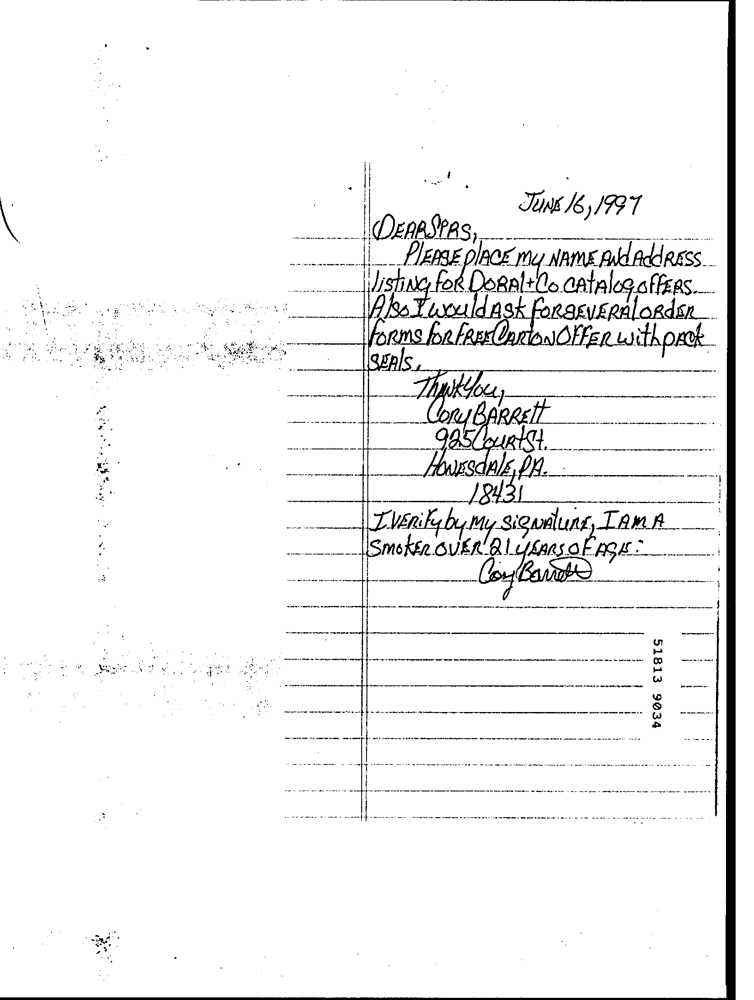 JUNE 16, 1997
DEAR SIRS,
PLEASE PLACE MY NAME AND ADDRESS
LISTING FOR DORAL + CO. CATALOG OFFERS.
ALSO I WOULD ASK FOR SEVERAL ORDER
FORMS FOR FREE CARTON OFFER WITH PACK
SEALS.
THANK YOU,
CORY BARRETT
925 COURT ST.
HONESDALE, PA.
18431
I VERIFY BY MY SIGNATURE, I AM A
SMOKER OVER 21 YEARS OF AGE:
Cory Barrett
51813 9034